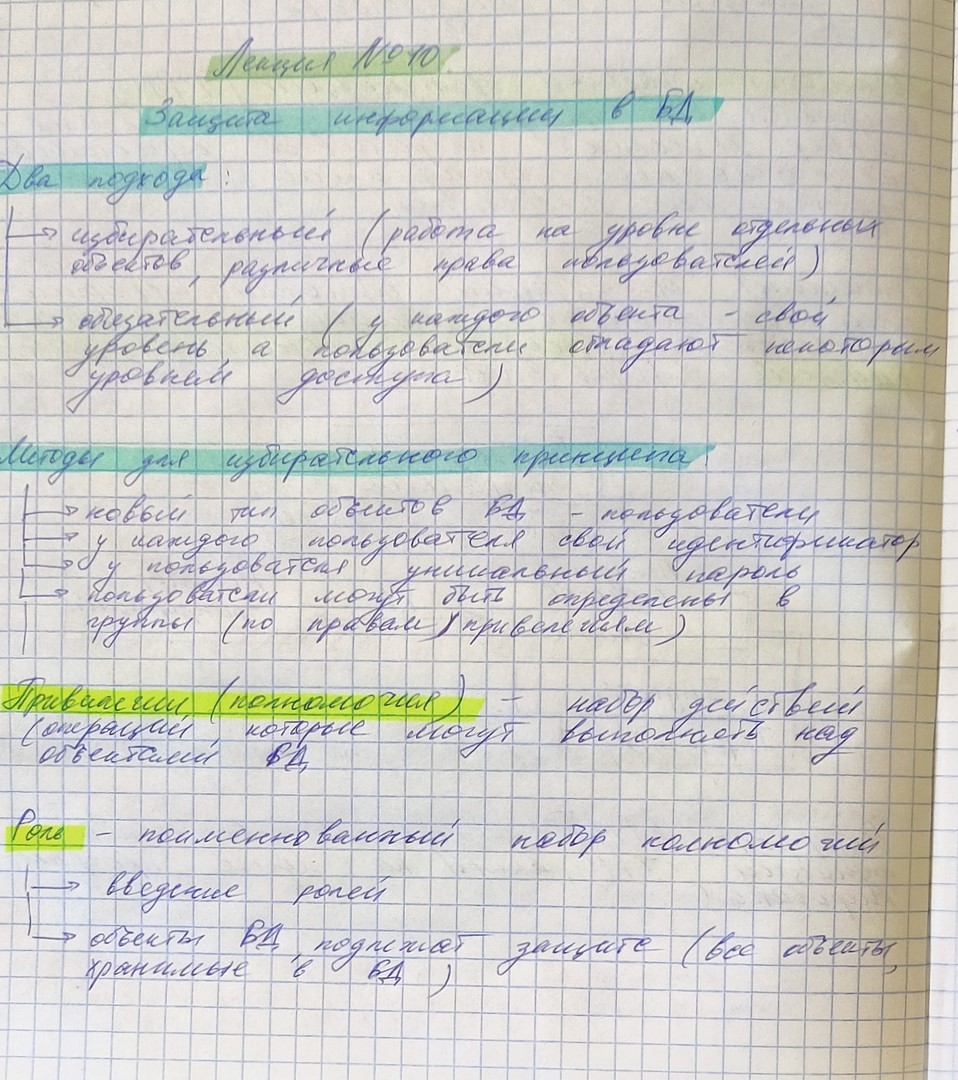 Лекция №10.
Защита информации в БД
Два подхода:
избирательный (работа на уровне отдельных
объектов, различные права пользователей)
обязательный (у каждого объекта - свой
уровень, а пользователи обладают некоторым
уровнем доступа)
Методы для избирательного принципа:
новый тип объектов БД - пользователи
у каждого пользователя свой идентификатор
у пользователя уникальный пароль
пользователи могут быть определены в
группы (по правам / привелегиям)
Привилегии (полномочия) - набор действий
(операций, которые могут выполнять над
объектами БД
Роль - поименнованный набор полномочий
введение ролей
объекты БД подлежат защите (все объекты,
хранимые в БД)